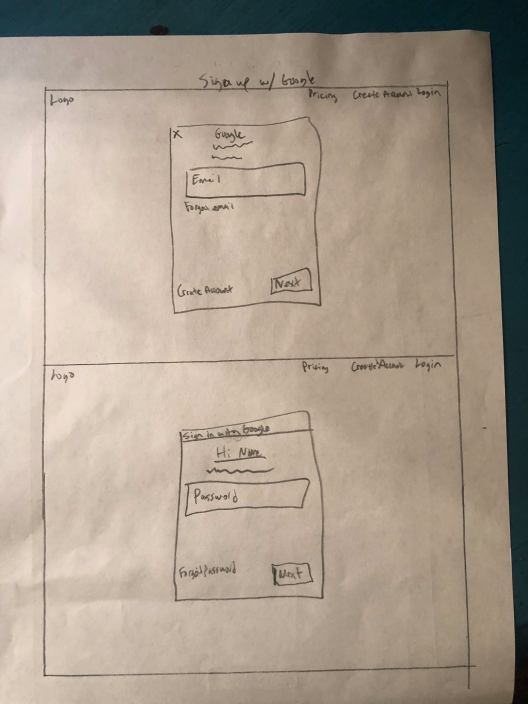 Sign up w/ Google
Logo Pricing Create Account Login
X Google
Email
Forgot email
Create Account Next
Logo Pricing Create Account Login
Sign in with Google
Hi Name
Password
Forgot Password Next